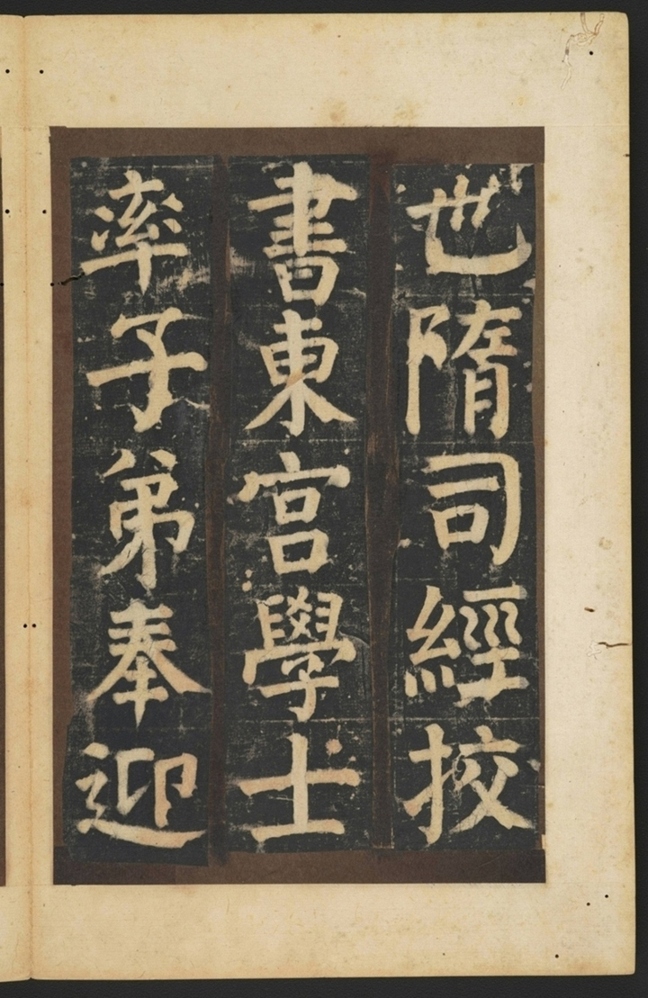 世隋司經挍
書東宮學士
率子弟奉迎